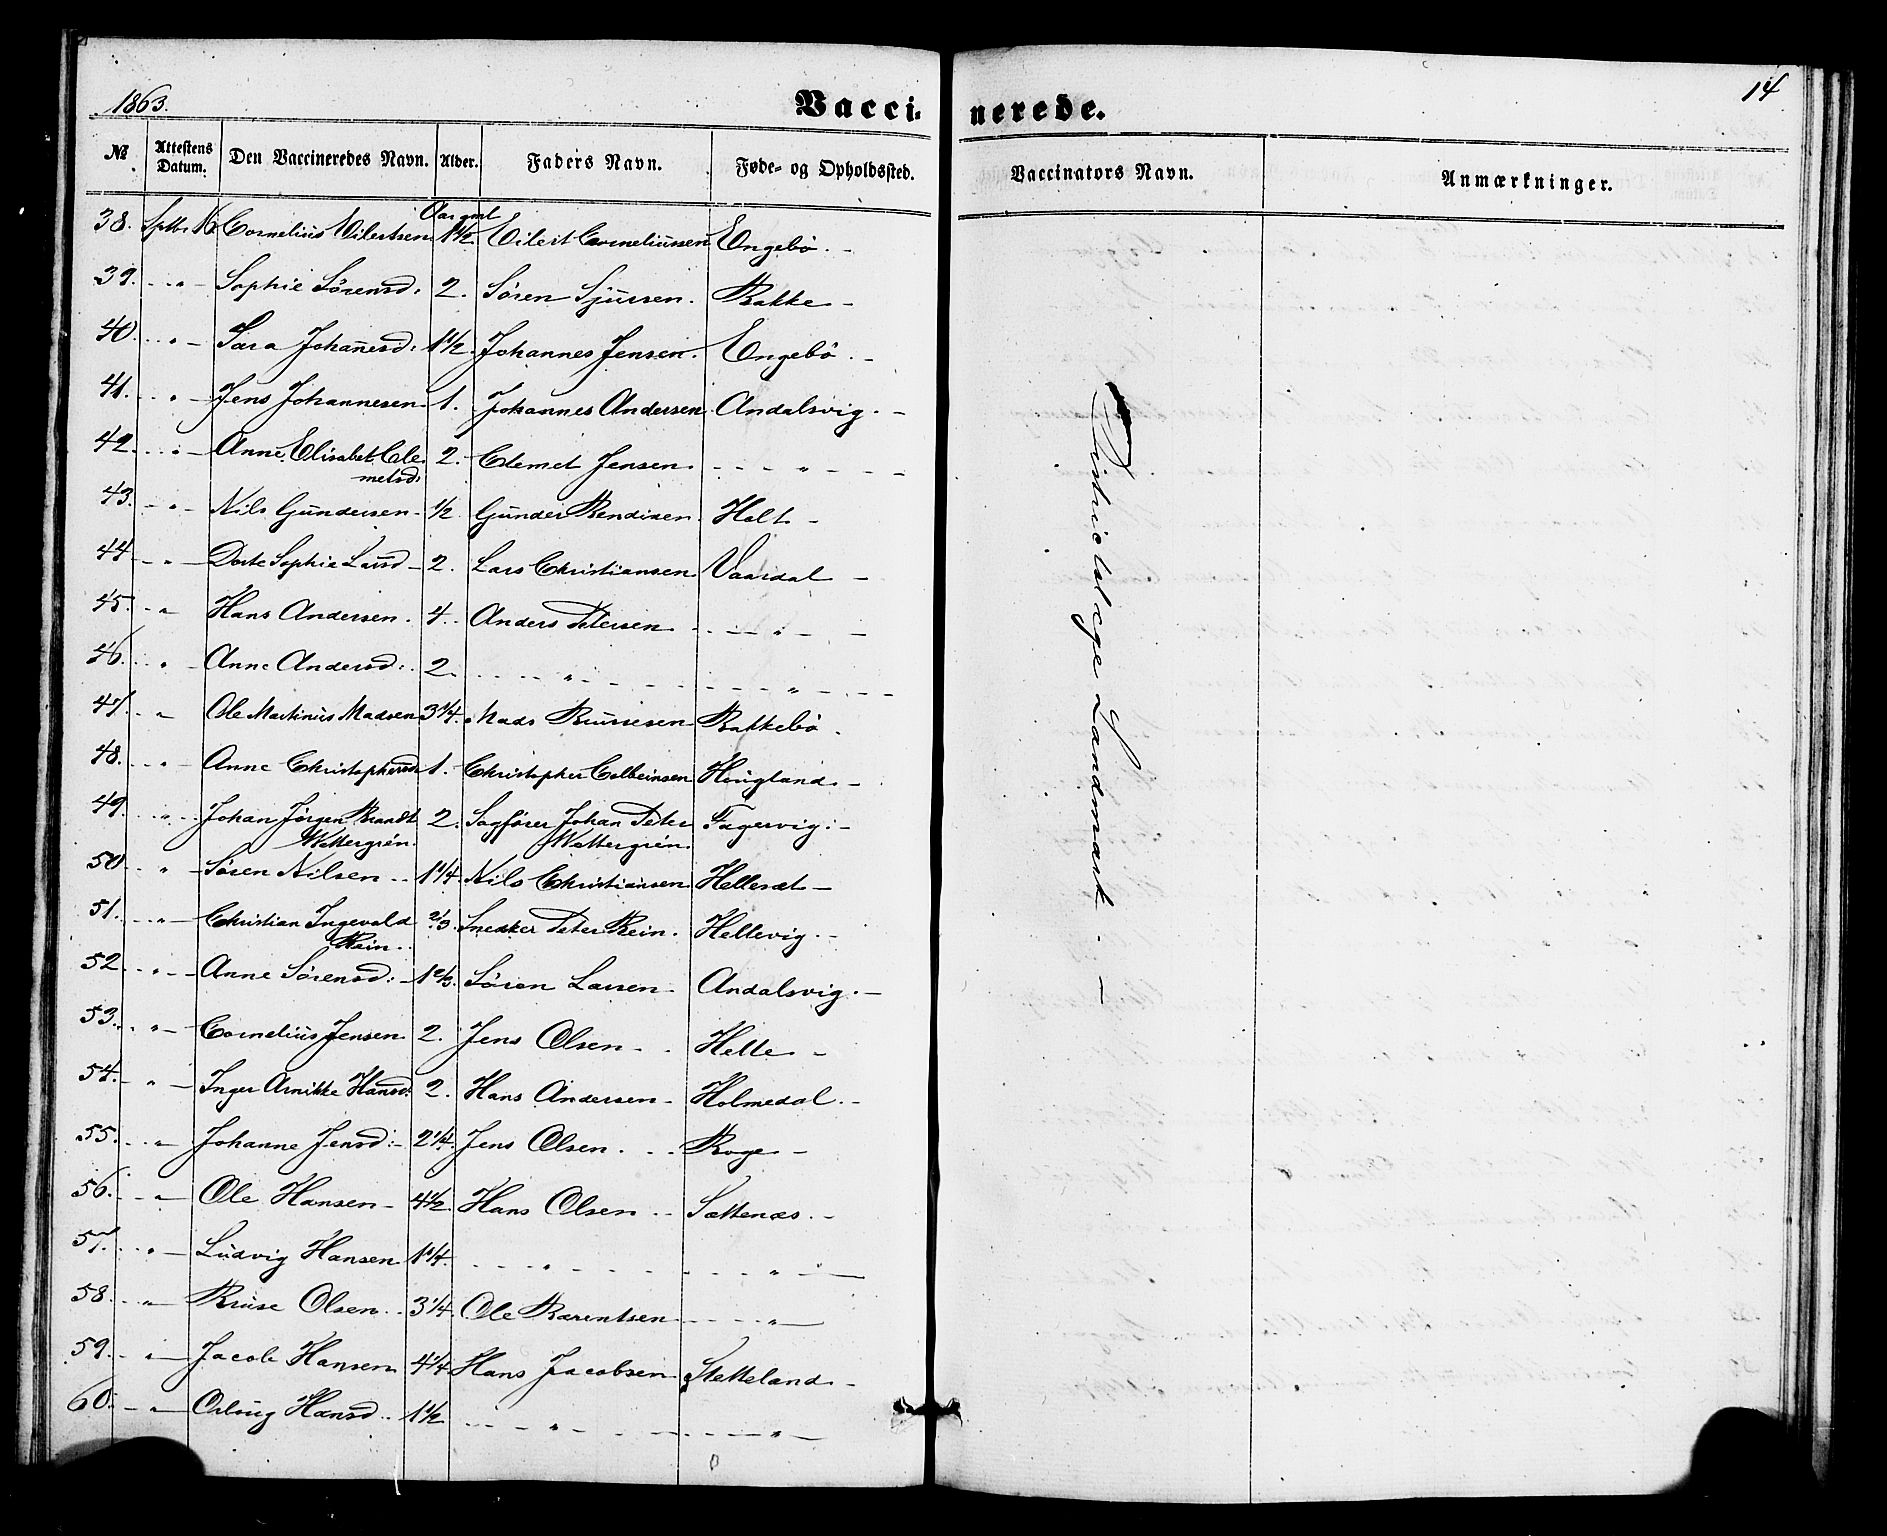 1863.
Vaccinerede.
14
№ Attestens Datum. Den Vaccineredes Navn. Alder. Faders Navn. Føde- og Opholdssted. Vaccinators Navn. Anmærkninger.
Aar gml
38. Septbr 16 Cornelius Eilertsen 1 1/2. Eilert Corneliussen Engebö. -
39. " Sophie Sörensd: 2. Sören Sjursen. Bakke -
40. " Sara Johanesd: 1 1/2. Johannes Jensen. Engebö. -
41. " Jens Johannesen 1. Johannes Andersen. Andalsvig. -
42. " Anne Elisabet Cle- 2. Clemet Jensen "
metsd:
43. " Nils Gundersen 1/2 Gunder Bendixen Holt -
44 " Dorte Sophie Larsd 2. Lars Christiansen Vaardal -
45. " Hans Andersen. 4. Anders Petersen "
46. " Anne Andersd: 2. " "
47. " Ole Martinus Madsen 3 1/4. Mads Krusesen Bakkebö.
48. " Anne Christophersd 1. Christopher Colbeinsen Hougland -
49. " Johan Jörgen Brandt 2. Sagförer Johan Peter Fagervig: -
Wettergrén. Wettergrén.
50. " Sören Nilsen 1 1/4. Nils Christiansen Hellesæt -
51. " Christian Ingevald 2/3. Snedker Peter Rein. Hellevig. -
Rein.
52 " Anne Sörensd: 1 2/3. Sören Larsen Andalsvig. -
53. " Cornelius Jensen 2. Jens Olsen Helle -
54. " Inger Arnikke Hansd: 2. Hans Andersen Holmedal. -
55. " Johanne Jensd: 2 1/4. Jens Olsen. -
56. " Ole Hansen 4 1/2. Hans Olsen Sættenæs. -
57. " Ludvig Hansen 1 1/4. " "
58. " Kruse Olsen 3 1/4. Ole Barentsen "
59. " Jacob Hansen 4 1/4. Hans Jacobsen Stetteland -
60. " Hansd. 1 1/2 " "
Districtslæge Landmark. -